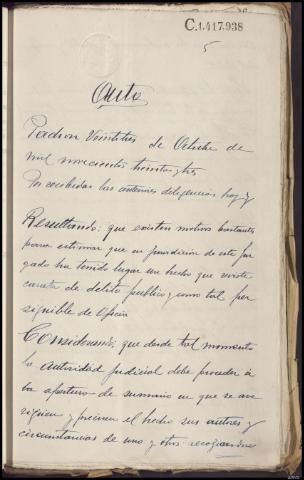 C.1.417.938
5
Auto
Padron Veintitres de Octubre de
mil novecientos treinta y tres
Por recibidas las anteriores diligencias hoy y
Resultando: que existen motivos bastantes
para estimar que en jurisdicion de este Juz
gado ha tenido lugar un hecho que reviste
caracter de delito publico y como tal per
siguible de Oficio
Considerando: que desde tal momento
la autoridad judicial debe proceder á
la apertura de sumario en que se ave
riguen y precisen el hecho sus autores y
circunstancias de uno y otros recogiendose